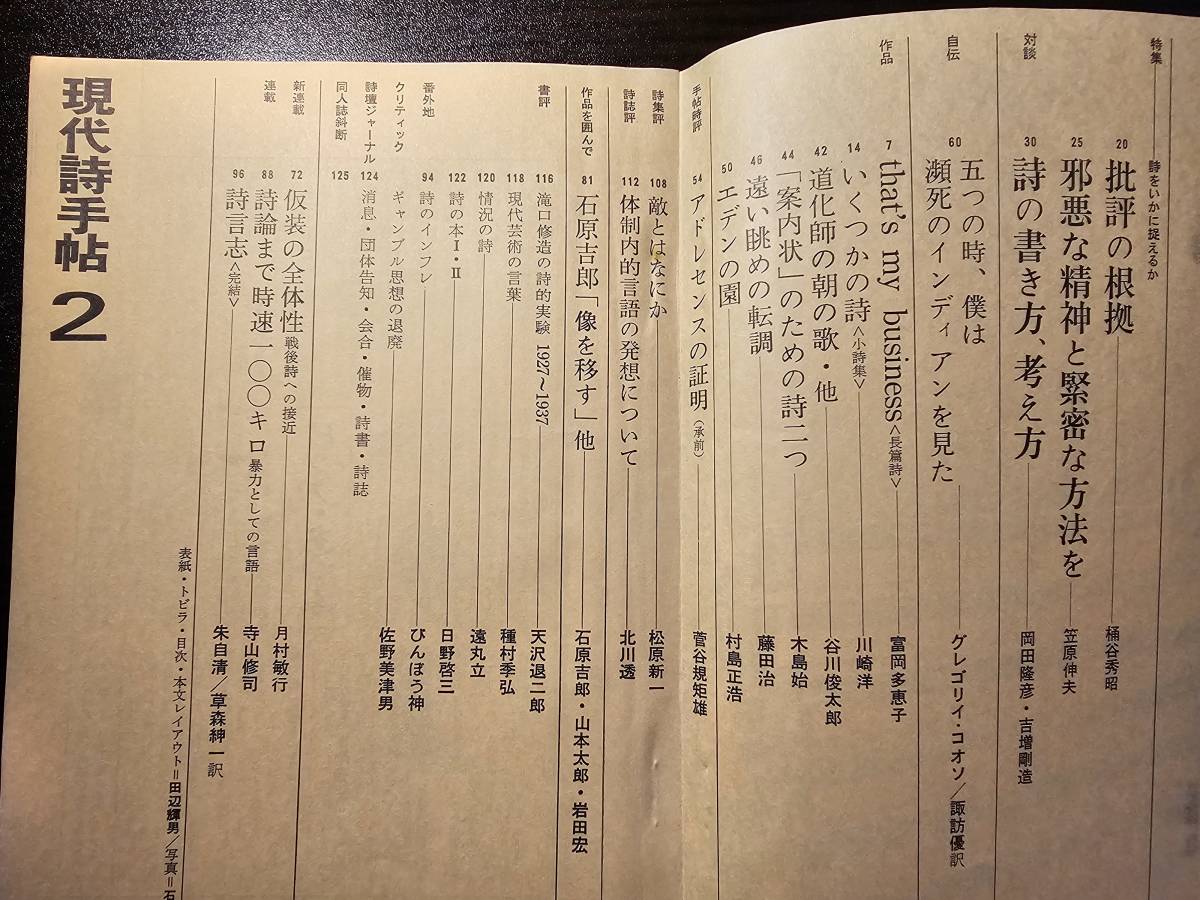 特集
詩をいかに捉えるか
20 批評の根拠 桶谷秀昭
25 邪悪な精神と緊密な方法を 笠原伸夫
対談
30 詩の書き方、考え方 岡田隆彦・吉増剛造
自伝
60 五つの時、僕は
瀕死のインディアンを見た グレゴリイ・コオソ/諏訪優訳
作品
7 that's my business<長篇詩> 富岡多恵子
14 いくつかの詩<小詩集> 川崎洋
42 道化師の朝の歌・他 谷川俊太郎
44 「案内状」のための詩二つ 木島始
46 遠い眺めの転調 藤田治
50 エデンの園 村島正浩
手帖時評
54 アドレセンスの証明(承前) 菅谷規矩雄
詩集評
108 敵とはなにか 松原新一
詩誌評
112 体制内的言語の発想について 北川透
作品を囲んで
81 石原吉郎「像を移す」他 石原吉郎・山本太郎・岩田宏
書評
116 滝口修造の詩的実験 1927~1937 天沢退二郎
118 現代芸術の言葉 種村季弘
120 情況の詩 遠丸立
122 詩の本Ⅰ・Ⅱ 日野啓三
番外地
94 詩のインフレ びんぼう神
クリティック
ギャンブル思想の退廃 佐野美津男
詩壇ジャーナル
124 消息・団体告知・会合・催物・詩書・詩誌
同人誌斜断
125
新連載
72 仮装の全体性 戦後詩への接近 月村敏行
連載
88 詩論まで時速一〇〇キロ 暴力としての言語 寺山修司
96 詩言志<完結> 朱自清/草森紳一訳
表紙・トビラ・目次・本文レイアウト=田辺輝男/写真=石
現代詩手帖 2